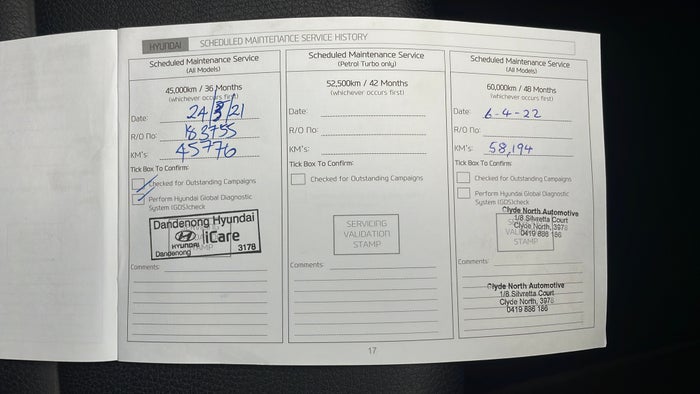 HYUNDAI SCHEDULED MAINTENANCE SERVICE HISTORY
Scheduled Maintenance Service
(All Models)
45,000km / 36 Months
(whichever occurs first)
Date: 24/3/21
R/O No: 183755
KM's: 45776
Tick Box To Confirm:
Checked for Outstanding Campaigns
Perform Hyundai Global Diagnostic
System (GDS)check
Dandenong Hyundai
HYUNDAI iCare
Dandenong 3178
Comments:
Scheduled Maintenance Service
(Petrol Turbo only)
52,500km / 42 Months
(whichever occurs first)
Date:
R/O No:
KM's:
Tick Box To Confirm:
Checked for Outstanding Campaigns
SERVICING
VALIDATION
STAMP
Comments:
Scheduled Maintenance Service
(All Models)
60,000km / 48 Months
(whichever occurs first)
Date: 6-4-22
R/O No:
KM's: 58,194
Tick Box To Confirm:
Checked for Outstanding Campaigns
Perform Hyundai Global Diagnostic
System (GDS)check
Clyde North Automotive
1/8 Silvretta Court
Clyde North, 3978
0419 886 186
STAMP
Comments:
Clyde North Automotive
1/8 Silvretta Court
Clyde North, 3978
0419 886 186
17